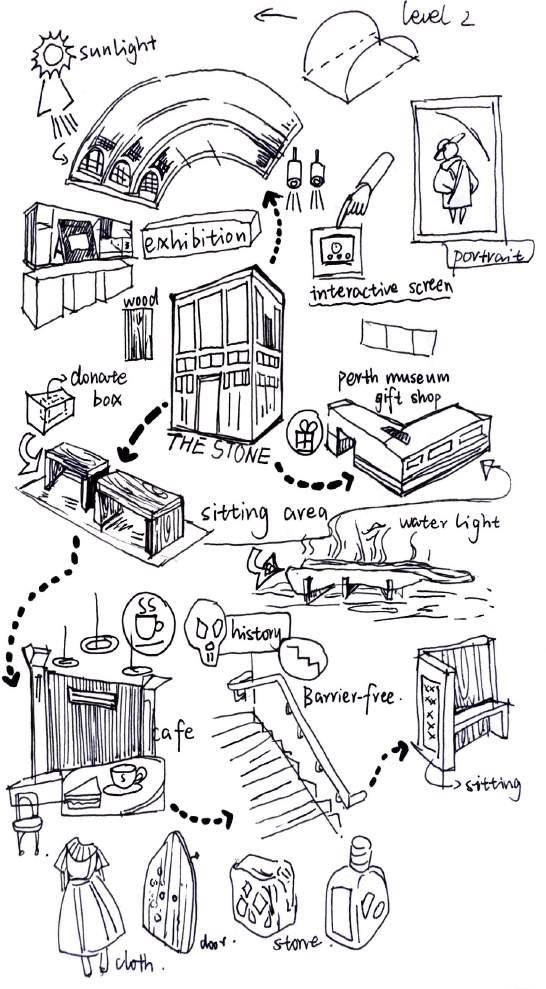 level 2
sunlight
exhibition
portrait
interactive screen
wood
donate
box
perth museum
gift shop
THE STONE
sitting area
water light
history
Barrier-free.
cafe
sitting
cloth.
door.
stone.